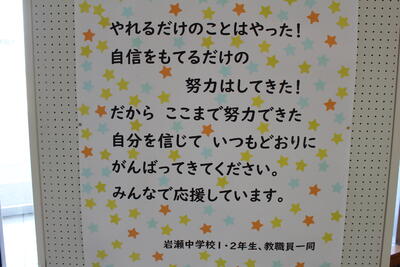 やれるだけのことはやった!
自信をもてるだけの
努力はしてきた!
だから ここまで努力できた
自分を信じて いつもどおりに
がんばってきてください。
みんなで応援しています。
岩瀬中学校1・2年生、教職員一同